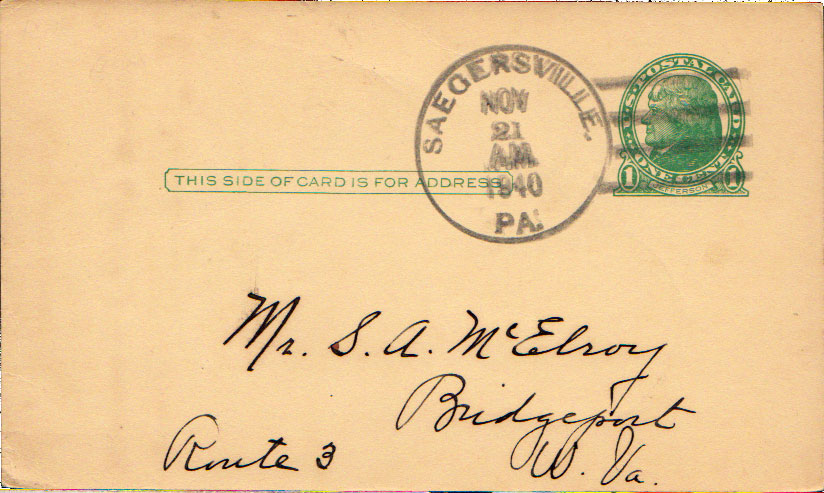 SAEGERSVILLE.
NOV
21
AM
1940
PA.
U.S. POSTAL CARD
ONE CENT
1 JEFFERSON 1
THIS SIDE OF CARD IS FOR ADDRESS
Mr. S. A. McElroy
Bridgeport
Route 3 W. Va.